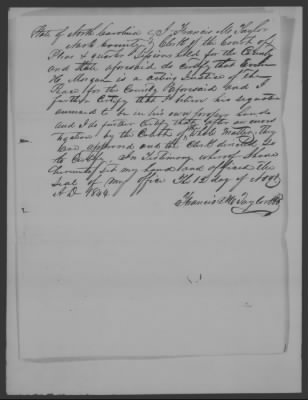 State of North Carolina } I Francis M. Taylor
County } Clerk of the Court of
Pleas & quarter Sessions held for the County
and State aforesaid do Certify that
H. Morgan is a acting Justice of the
Peace for the County Aforesaid and I
further Certify that I believe his signature
annexed to be in his own proper hand
and I do further Certify that after an
by the Court
was approved and the Clerk directed
to Certify. In Testimony whereof I have
hereunto set my hand and affixed the
Seal of my office The 12 day of
A D 1844
Francis M Taylor